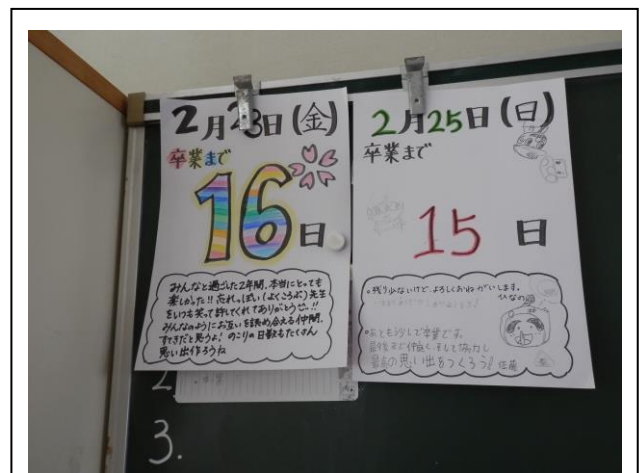 2月23日(金)
卒業まで
16日
みんなと過ごした2年間、本当にとっても
楽しかった!! 忘れっぽい(よくころぶ)先生
をいつも笑って許してくれてありがとう!!
みんなのようにお互いを認め合える仲間、
すてきだと思うよ! のこりの日数もたくさん
思い出作ろうね
2月25日(日)
卒業まで
15日
残り少ないけど、よろしくおねがいします。
ひなの
あと少しで卒業です。
最後まで仲良くして協力し
最高の思い出をつくろう! 佐藤
2.
3.